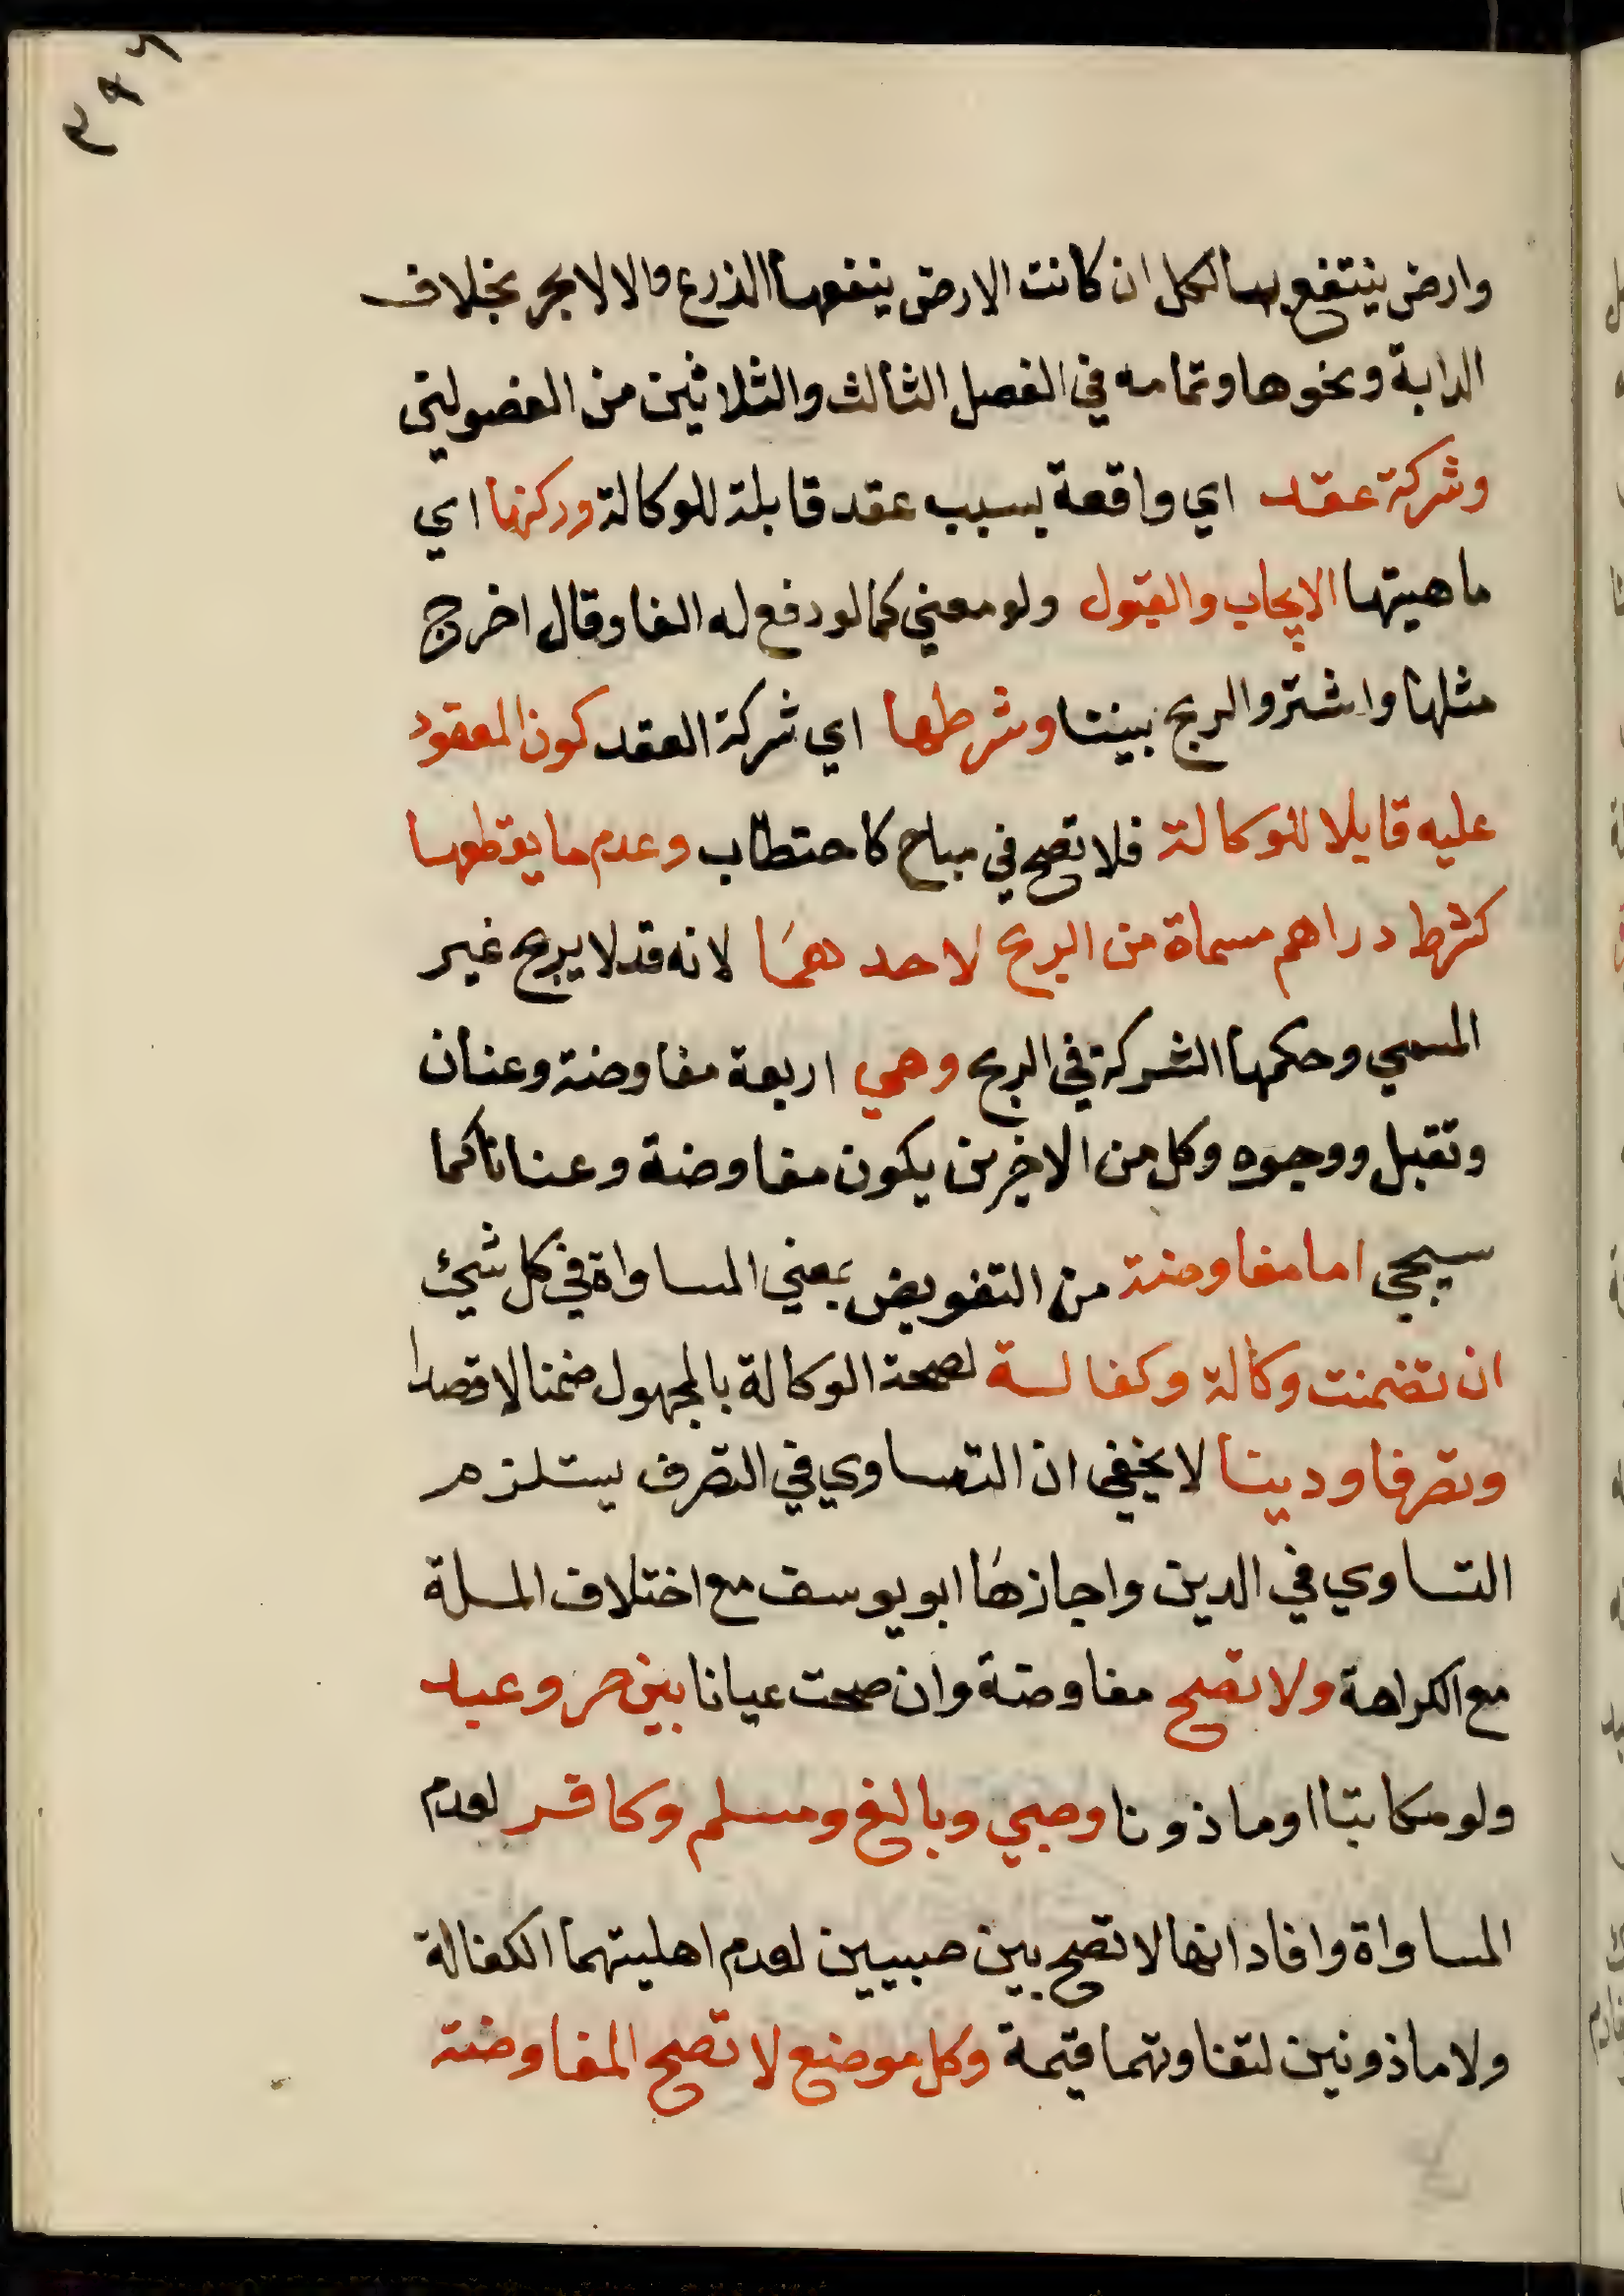 ٣٩٦
وارض ينتفع بها لكل ان كانت الارض ينفعها الزرع والا لا بحر بخلاف
الدابة ونحوها وتمامه في الفصل الثالث والثلاثين من الفصولين
وشركة عقد اي واقعة بسبب عقد قابلة للوكالة وركنها اي
ماهيتها الايجاب والقبول ولو معني كما لو دفع له الفا وقال اخرج
مثلها واشتر والربح بيننا وشرطها اي شركة العقد كون المعقود
عليه قابلا للوكالة فلا تصح في مباح كاحتطاب وعدم ما يقطعها
كشرط دراهم مسماة من الربح لاحدهما لانه قد لا يربح غير
المسمي وحكمها الشركة في الربح وهي اربعة مفاوضة وعنان
وتقبل ووجوه وكل من الاخيرين يكون مفاوضة وعنانا كما
سيجي اما مفاوضة من التفويض بمعني المساواة في كل شيئ
ان تضمنت وكالة وكفالة لصحة الوكالة بالمجهول ضمنا لا قصدا
وتصرفا ودينا لا يخفي ان التساوي في التصرف يستلزم
التساوي في الدين واجازها ابو يوسف مع اختلاف الملة
مع الكراهة ولا تصح مفاوضة وان صحت عيانا بين حر وعبد
ولو مكاتبا او ماذونا وصبي وبالغ ومسلم وكافر لعدم
المساواة وافاد انها لا تصح بين صبيين لعدم اهليتهما الكفالة
ولا ماذونين لتفاوتهما قيمة وكل موضع لا تصح المفاوضة